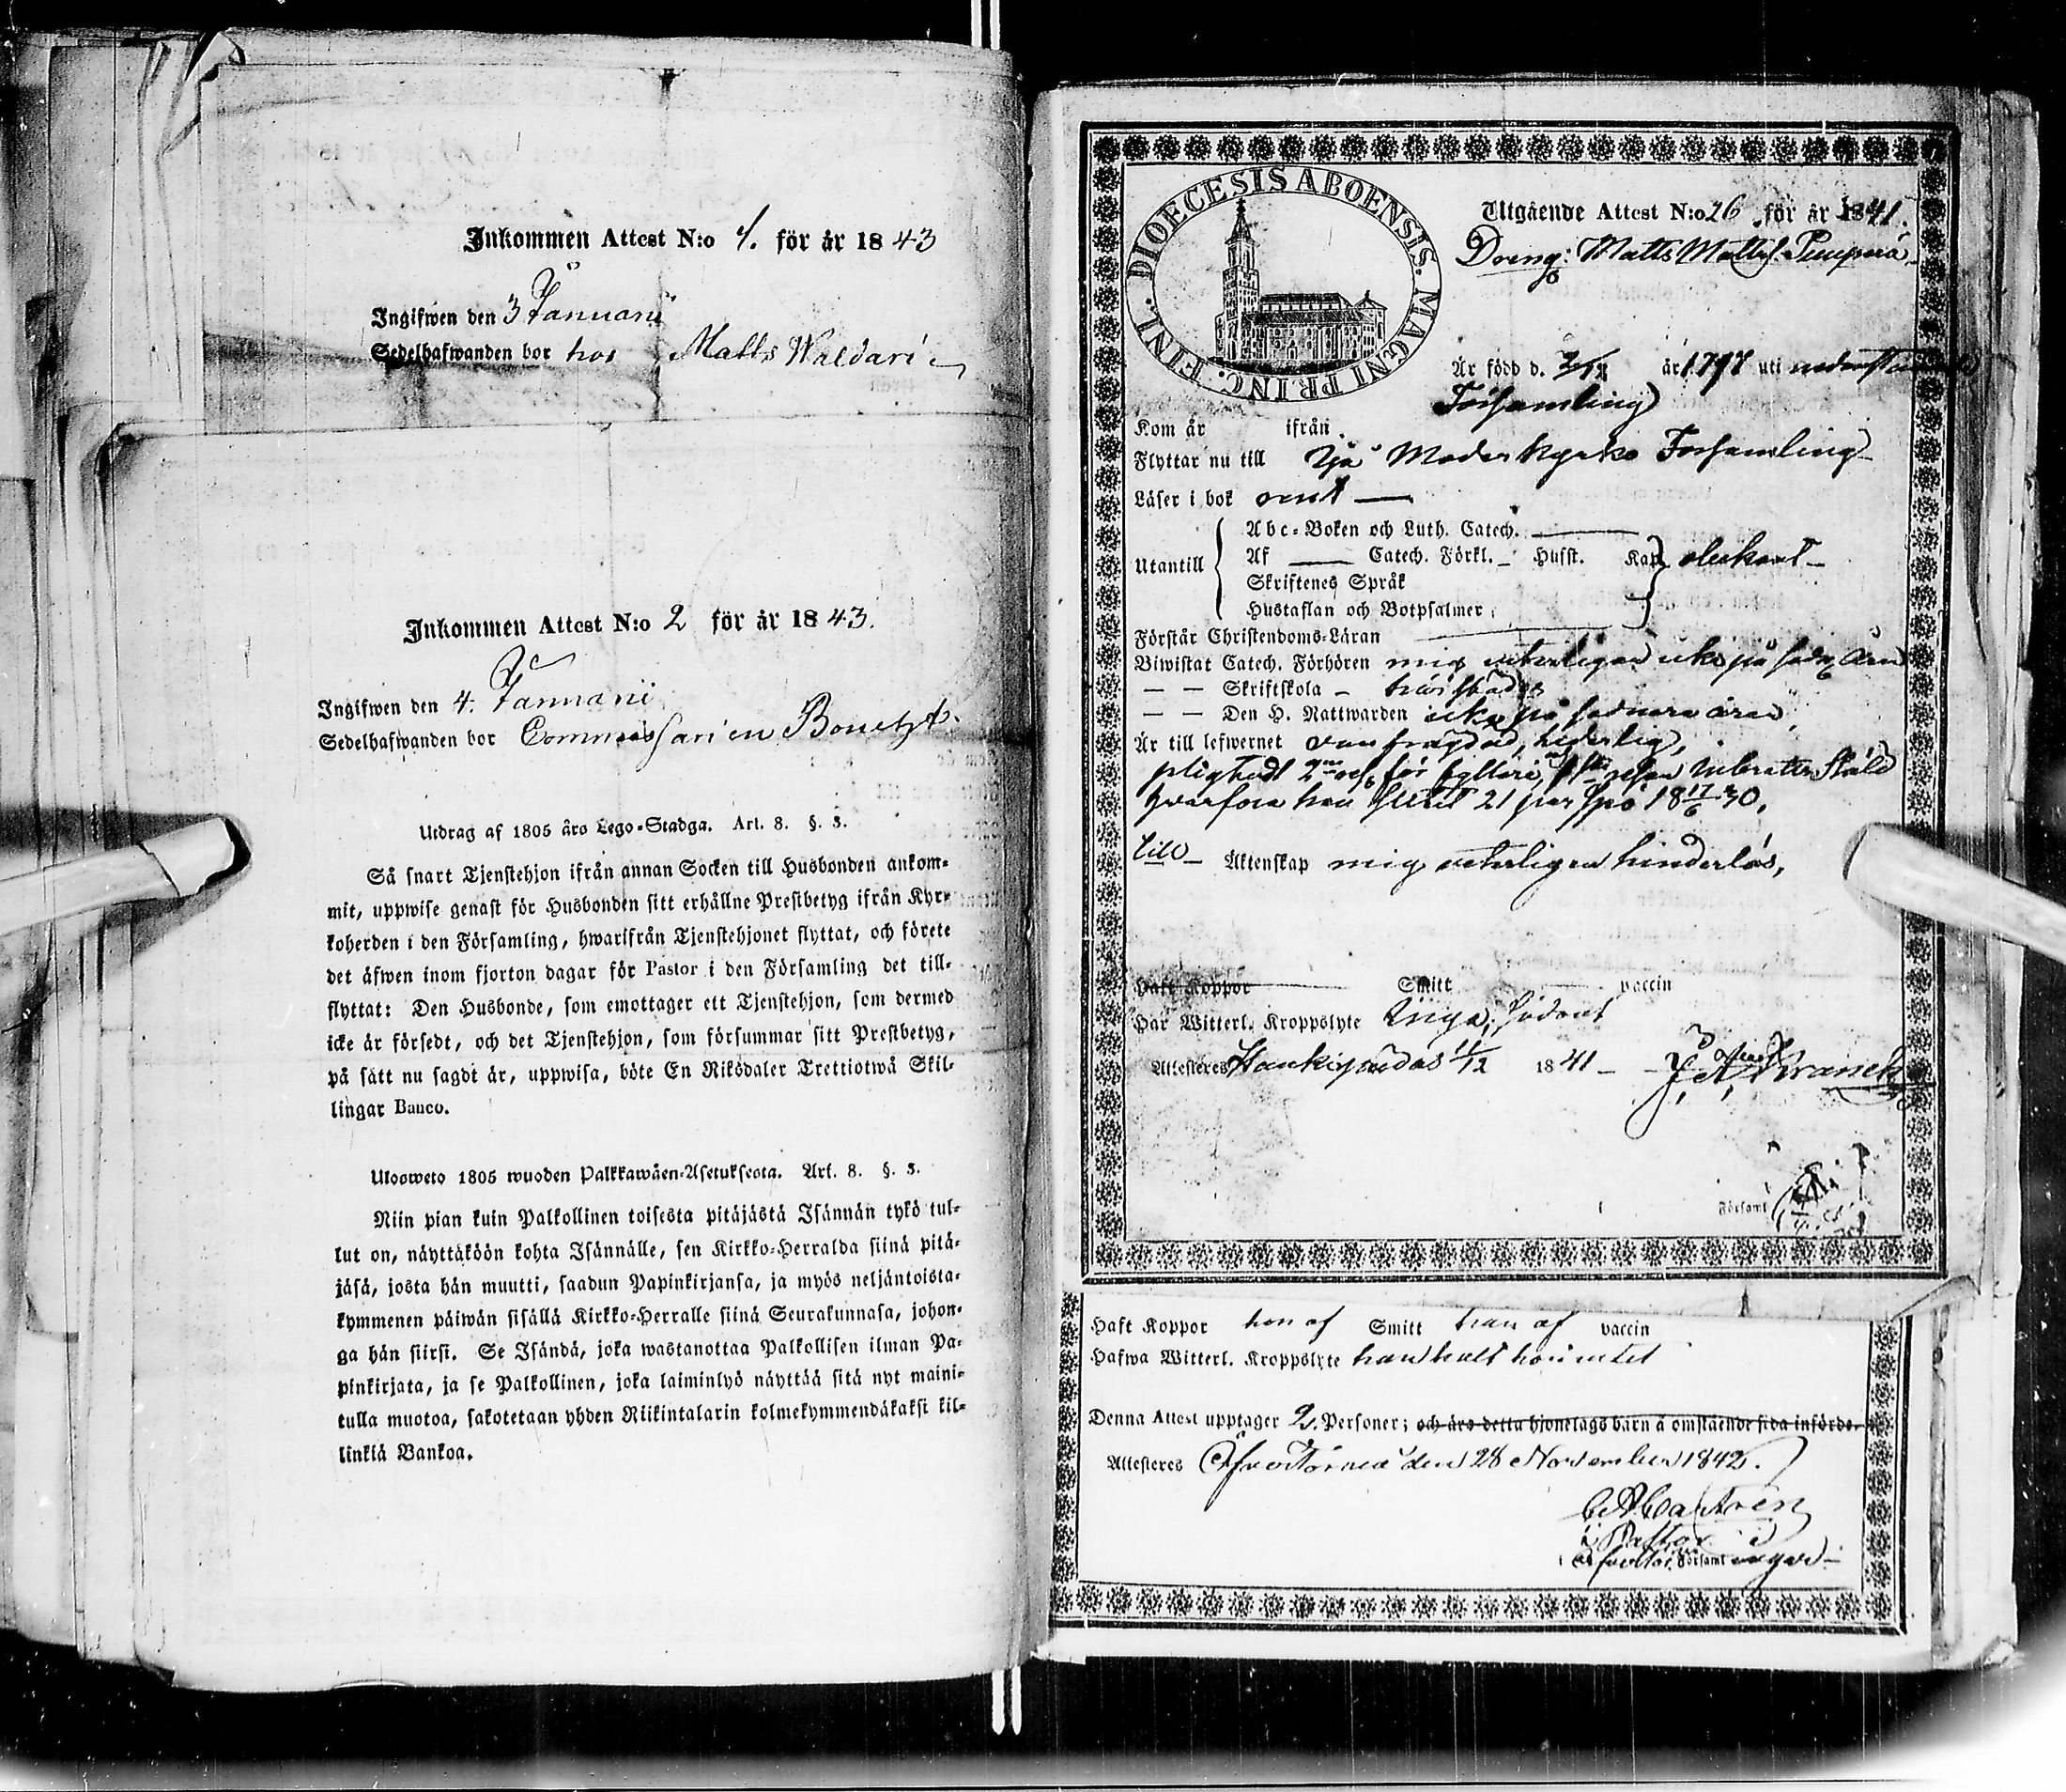 Inkommen Attest N:o 1. för år 1843
Ingifwen den 3 Januarii
Sedelhafwanden bor hos Matts Waldari
Inkommen Attest N:o 2 för år 1843.
Ingifwen den 4. Januarii
Sedelhafwanden bor Commissarien
Utdrag af 1805 års Lego-Stadga. Art. 8. §. 3.
Så snart Tjenstehjon ifrån annan Socken till Husbonden ankom-
mit, uppwise genast för Husbonden sitt erhållne Prestbetyg ifrån Kyr-
koherden i den Församling, hwarifrån Tjenstehjonet flyttat, och förete
det äfwen inom fjorton dagar för Pastor i den Församling det till-
flyttat: Den Husbonde, som emottager ett Tjenstehjon, som dermed
icke är försedt, och det Tjenstehjon, som försummar sitt Prestbetyg,
på sätt nu sagdt är, uppwisa, böte En Riksdaler Trettiotwå Skil-
lingar Banco.
Ulosweto 1805 wuoden Palkkawäen-Asetuksesta. Art. 8. §. 3.
Niin pian kuin Palkollinen toisesta pitäjästä Isännän tykö tul-
lut on, näyttäköön kohta Isännälle, sen Kirkko-Herralda siinä pitä-
jäsä, josta hän muutti, saadun Papinkirjansa, ja myös neljäntoista-
kymmenen päiwän sisällä Kirkko-Herralle siinä Seurakunnasa, johon-
ga hän siirsi. Se Isändä, joka wastanottaa Palkollisen ilman Pa-
pinkirjata, ja se Palkollinen, joka laiminlyö näyttää sitä nyt maini-
tulla muotoa, sakotetaan yhden Riikintalarin kolmekymmendäkaksi kil-
linkiä Bankoa.
DIOECESIS ABOENSIS. MAGNI PRINC. FINL.
Utgående Attest N:o 26 för år 1841.
Dreng: Matts Matts
Är född d. år 1797 uti
Församling
Kom år ifrån
Flyttar nu till Ijå Moderkyrko Församling
Läser i bok
Utantill
Abc-Boken och Luth. Catech.
Af Catech. Förkl. Husst. Kap.
Skriftenes Språk
Hustaflan och Botpsalmer
Förstår Christendoms-Läran
Biwistat Catech. Förhören mig veterligen icke på åren
— — Skriftskola —
— — Den H. Nattwarden icke på sednare åren
Är till lefwernet
plightadt 2 för fylleri,
hvarföre han 21 par spö 18 17/6 30.
till Äktenskap mig veterligen hinderlös,
Haft Koppor Smitt vaccin
Har Witterl. Kroppslyte Inga
Attesteres Haukipudas 11/12 1841 — Franck
Församl.
Haft Koppor hon af Smitt han af vaccin
Hafwa Witterl. Kroppslyte han halt hon intet
Denna Attest upptager 2. Personer; och äro detta hjonelags barn å omstående sida införde.
Attesteres Öfver Torneå den 28 November 1842.
Castrén
Pastor i
Församl